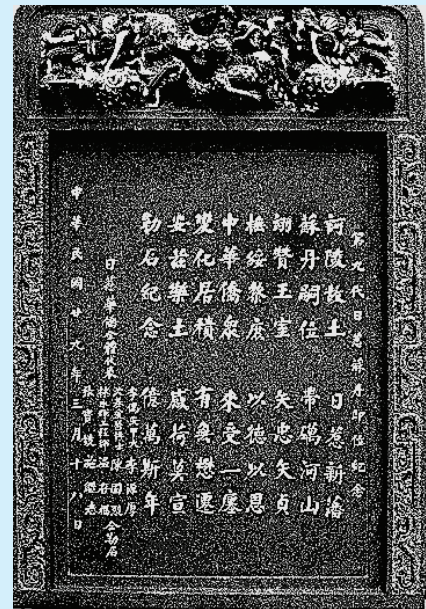 第九代日惹蘇丹即位紀念
訶陵故土 日惹新藩
蘇丹嗣位 帶礪河山
翊贊王室 矢忠矢貞
撫綏黎庶 以德以恩
中華僑眾 來受一廛
變化居積 有無懋遷
安茲樂土 感荷莫宣
勒石紀念 億萬斯年
日惹華僑
李源厚
陳國烈
中華民國廿九年三月十八日